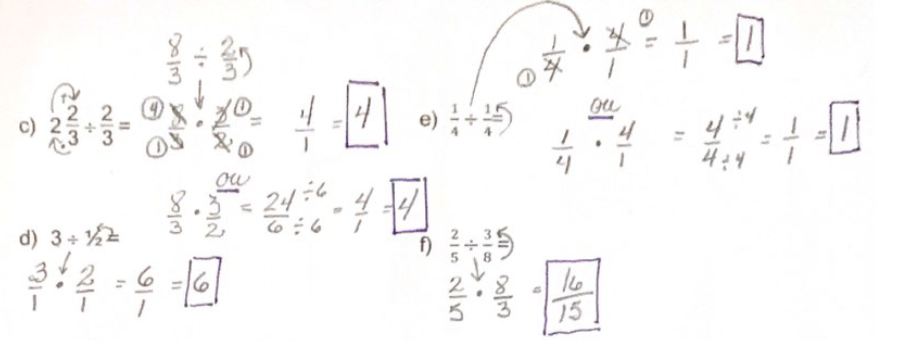 8/3 ÷ 2/3
c) 2 2/3 ÷ 2/3 = 8/3 · 3/2 = 4/1 = 4
④ ① ① ①
ou
8/3 · 3/2 = 24/6 ÷6/÷6 = 4/1 = 4
d) 3 ÷ 1/2 =
3/1 · 2/1 = 6/1 = 6
e) 1/4 ÷ 1/4 =
1/4 · 4/1 = 1/1 = 1
① ①
ou
1/4 · 4/1 = 4/4 ÷4/÷4 = 1/1 = 1
f) 2/5 ÷ 3/8 =
2/5 · 8/3 = 16/15